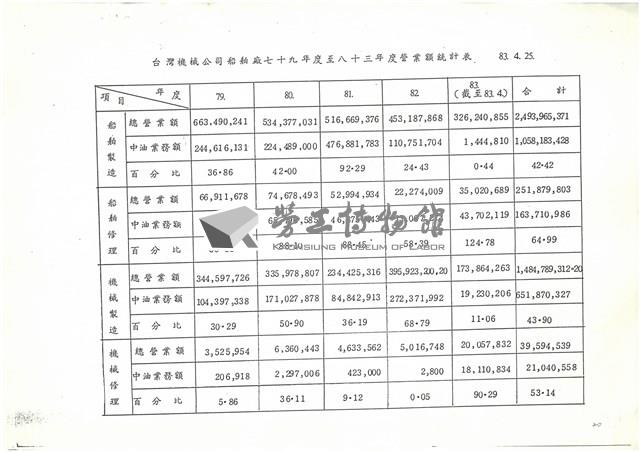 台灣機械公司船舶廠七十九年度至八十三年度營業額統計表 83.4.25.
項目 年度 79. 80. 81. 82. 83.(截至83.4.) 合計
船舶製造 總營業額 663,490,241 534,377,031 516,669,376 453,187,868 326,240,855 2,493,965,371
中油業務額 244,616,131 224,489,000 476,881,783 110,751,704 1,444,810 1,058,183,428
百分比 36.86 42.00 92.29 24.43 0.44 42.42
船舶修理 總營業額 66,911,678 74,678,493 52,994,934 22,274,009 35,020,689 251,879,803
中油業務額 43,702,119 163,710,986
百分比 88.10 88.45 58.39 124.78 64.99
勞工博物館
KAOHSIUNG MUSEUM OF LABOR
機械製造 總營業額 344,597,726 335,978,807 234,425,316 395,923,200.20 173,864,263 1,484,789,312.20
中油業務額 104,397,338 171,027,878 84,842,913 272,371,992 19,230,206 651,870,327
百分比 30.29 50.90 36.19 68.79 11.06 43.90
機械修理 總營業額 3,525,954 6,360,443 4,633,562 5,016,748 20,057,832 39,594,539
中油業務額 206,918 2,297,006 423,000 2,800 18,110,834 21,040,558
百分比 5.86 36.11 9.12 0.05 90.29 53.14